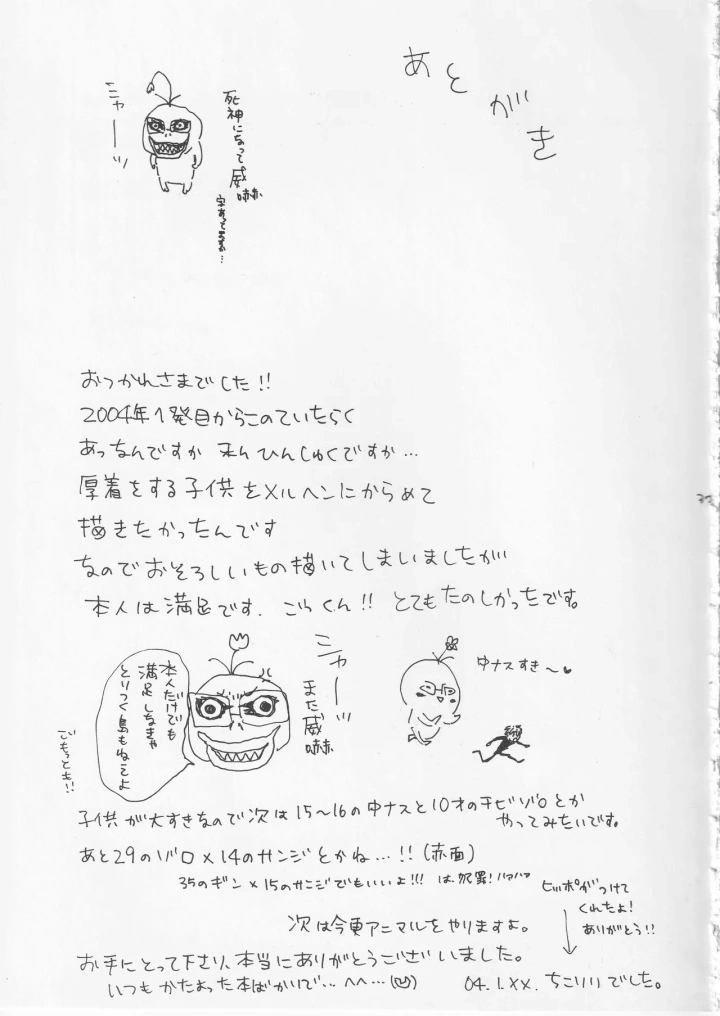 あとがき
ニャーッ
死神になって威嚇
字あってるか…
おつかれさまでした!!
2004年1発目からこのていたらく
あっなんですか ひんしゅくですか…
厚着をする子供をメルヘンにからめて
描きたかったんです
なのでおそろしいもの描いてしまいましたが
本人は満足です. ごらくん!! とてもたのしかったです。
ニャーッ
また威嚇
本人だけでも
満足しなきゃ
とりつく島もねぇよ
ごもっとも!!
中ナスすき〜♥
子供が大すきなので次は15〜16の中ナスと10才のチビゾロとか
やってみたいです。
あと29のゾロ×14のサンジとかね…!!(赤面)
35のギン×15のサンジでもいいよ!!! は、犯罪!ハァハァ
次は今更アニマルをやりますよ。
ヒッポがつけて
くれたよ!
ありがとう!!
お手にとって下さり、本当にありがとうございました。
いつもかたよった本ばかりで… へへ…
04.1.XX. ちこリリでした。